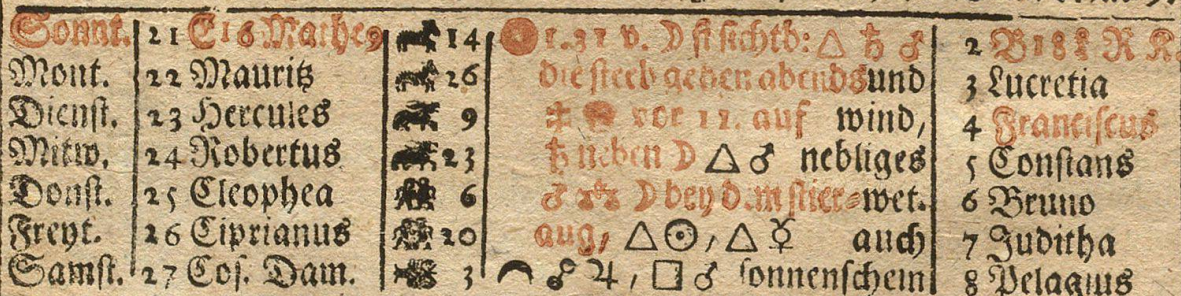 Sonnt. 21 E16 Mathe9 14 1.31 v. ☽ ist sichtb: △ ♄ ♂ 2 B18
Mont. 22 Mauritz 26 gegen abends und 3 Lucretia
Dienst. 23 Hercules 9 vor 11. auf wind, 4 Franciscus
Mitw. 24 Robertus 23 ♄ neben ☽ △ ♂ nebliges 5 Constans
Donst. 25 Cleophea 6 ♂ ☽ bey d. m stier⸗wet. 6 Bruno
Freyt. 26 Ciprianus 20 aug, △ ☉, △ ☿ auch 7 Juditha
Samst. 27 Cos. Dam. 3 ☍ ♃, □ ♂ sonnenschein 8 Pelagius